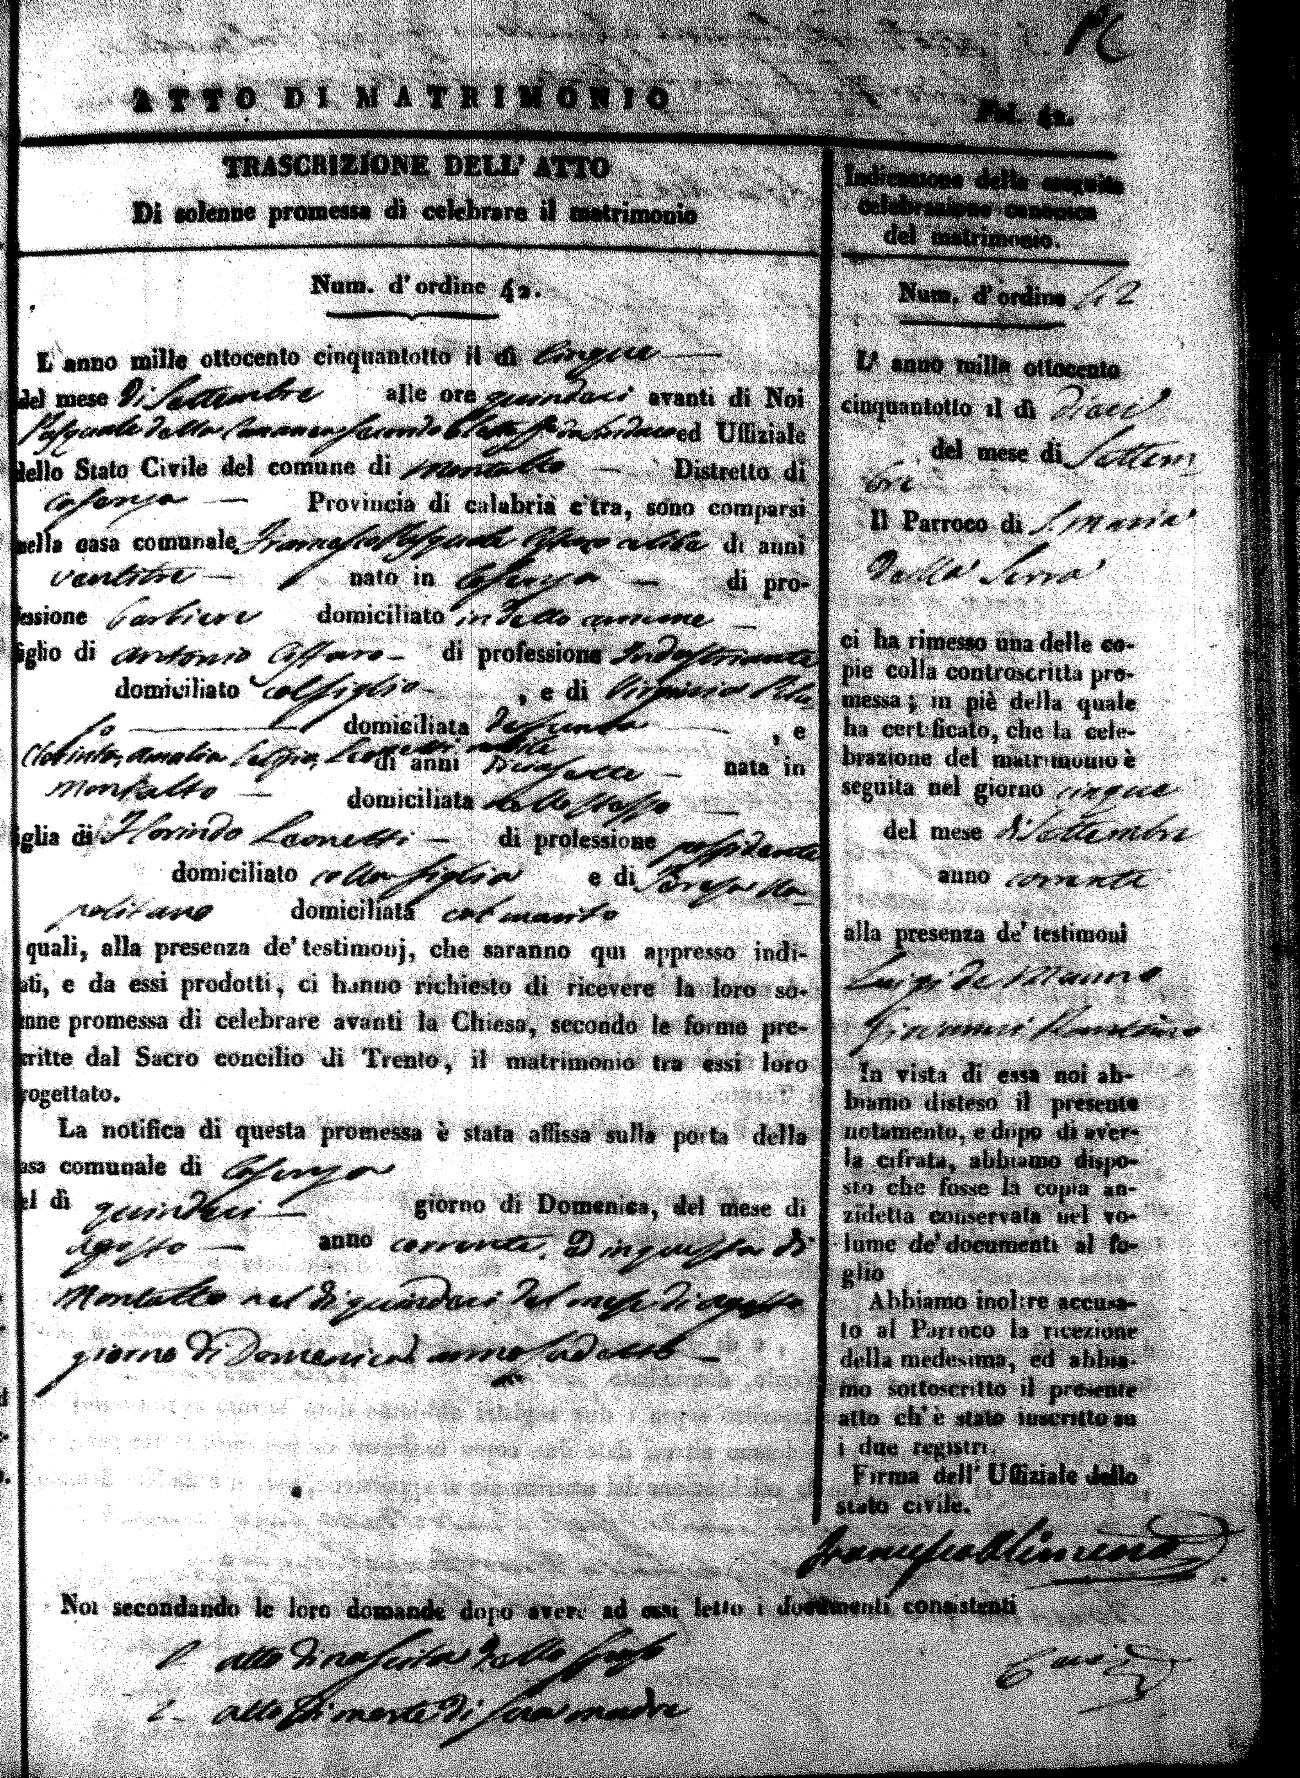 ATTO DI MATRIMONIO
Fol. 42.
TRASCRIZIONE DELL' ATTO
Di solenne promessa di celebrare il matrimonio
Num. d'ordine 42.
L anno mille ottocento cinquantotto il dì cinque
del mese di Settembre alle ore quindeci avanti di Noi
Pasquale della secondo ed Uffiziale
dello Stato Civile del comune di Montalto Distretto di
Cosenza Provincia di calabria c'tra, sono comparsi
nella casa comunale Francesco Pasquale celibe di anni
ventitre nato in Cosenza di pro-
essione barbiere domiciliato in detto comune
iglio di Antonio di professione Industriante
domiciliato col figlio , e di Virginia
domiciliata defunta , e
Clorinda, Amalia Leonetti nubile
di anni Diciasette nata in
Montalto domiciliata nello stesso
iglia di Florindo Leonetti di professione possidente
domiciliato colla figlia e di Teresa Na-
politano domiciliata col marito
quali, alla presenza de' testimonj, che saranno qui appresso indi-
ati, e da essi prodotti, ci hanno richiesto di ricevere la loro so-
enne promessa di celebrare avanti la Chiesa, secondo le forme pre-
critte dal Sacro concilio di Trento, il matrimonio tra essi loro
rogettato.
La notifica di questa promessa è stata affissa sulla porta della
asa comunale di Cosenza
el dì quindeci giorno di Domenica, del mese di
Agosto anno corrente. E in questa di
Montalto nel dì quindeci del mese di Agosto
giorno di Domenica anno sudetto
Indicazione della seguita
celebrazione canonica
del matrimonio.
Num. d'ordine 42
L' anno mille ottocento
cinquantotto il dì dieci
del mese di Settem
bre
Il Parroco di S. Maria
della Serra
ci ha rimesso una delle co-
pie colla controscritta pro-
messa; in piè della quale
ha certificato, che la cele-
brazione del matrimonio è
seguita nel giorno cinque
del mese di Settembre
anno corrente
alla presenza de' testimoni
Luigi de Mauro
Giovanni
In vista di essa noi ab-
biamo disteso il presente
notamento, e dopo di aver-
la cifrata, abbiamo dispo-
sto che fosse la copia an-
zidetta conservata nel vo-
lume de' documenti al fo-
glio
Abbiamo inoltre accusa-
to al Parroco la ricezione
della medesima, ed abbia-
mo sottoscritto il presente
atto ch' è stato inscritto su
i due registri.
Firma dell' Uffiziale dello
stato civile.
Francesco
Noi secondando le loro domande dopo avere ad essi letto i documenti consistenti
1 atto di nascita dello sposo
2 atto di morte di sua madre